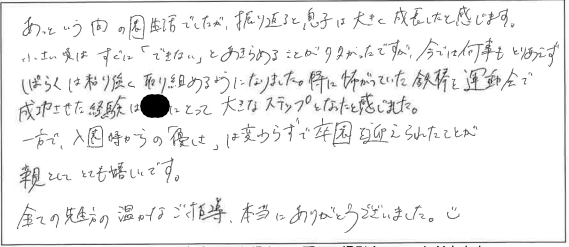 あっという間の園生活でしたが、振り返ると息子は大きく成長したと感じます。
小さい頃はすぐに「できない」とあきらめることが多かったですが、今では何事もとりあえず
しばらくは粘り強く取り組めるようになりました。特に怖がっていた鉄棒を運動会で
成功させた経験は にとって大きなステップとなったと感じました。
一方で、入園時からの「優しさ」は変わらずで卒園を迎えられたことが
親としてとても嬉しいです。
全ての先生方の温かなご指導、本当にありがとうございました。